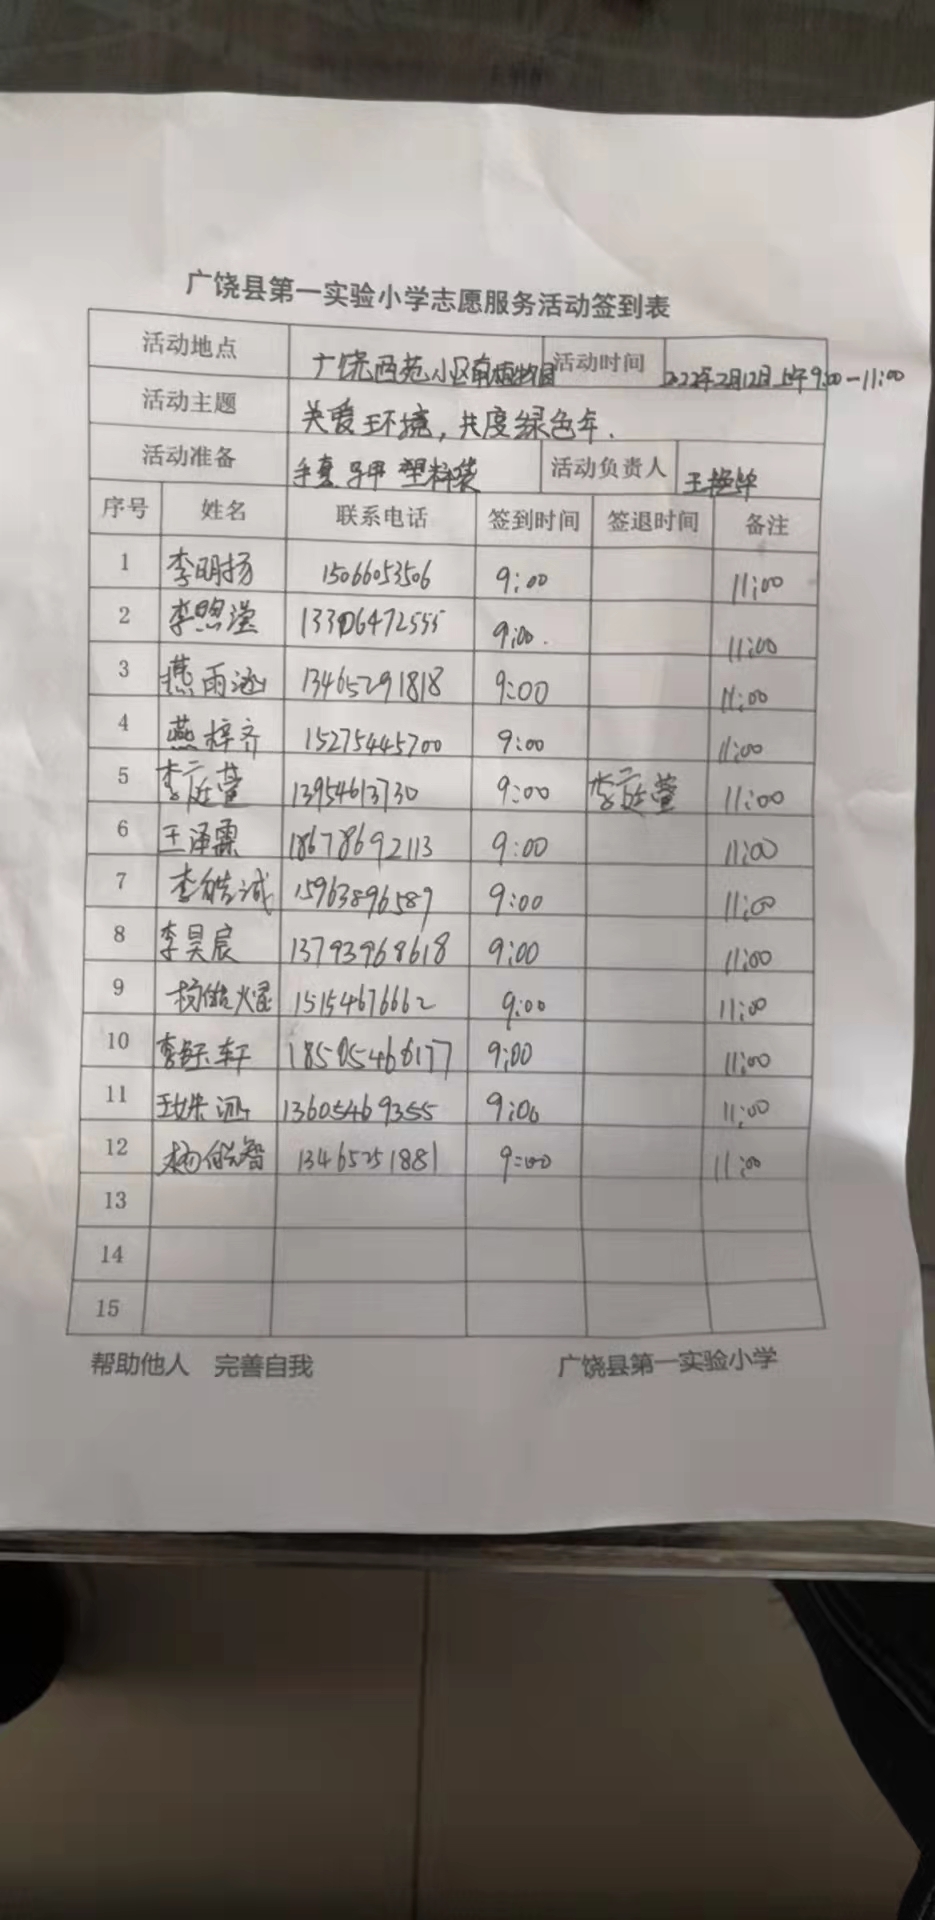 广饶县第一实验小学志愿服务活动签到表
活动地点 广饶西苑小区 植物园 活动时间 2022年2月12日上午9:00-11:00
活动主题 关爱环境，共度绿色年.
活动准备 手套 塑料袋 活动负责人 王
序号 姓名 联系电话 签到时间 签退时间 备注
1 李明扬 15066053506 9:00 11:00
2 李煦滢 13306472555 9:00. 11:00
3 燕雨涵 13465291818 9:00 11:00
4 燕梓齐 15275445700 9:00 11:00
5 李庭萱 13954613730 9:00 李庭萱 11:00
6 王泽霖 18678692113 9:00 11:00
7 李皓诚 15963896587 9:00 11:00
8 李昊宸 13793968618 9:00 11:00
9 杨皓焜 15154676662 9:00 11:00
10 李钰轩 18505466177 9:00 11:00
11 王姝涵 13605469355 9:00 11:00
12 杨皓智 13465251881 9:00 11:00
13
14
15
帮助他人 完善自我 广饶县第一实验小学